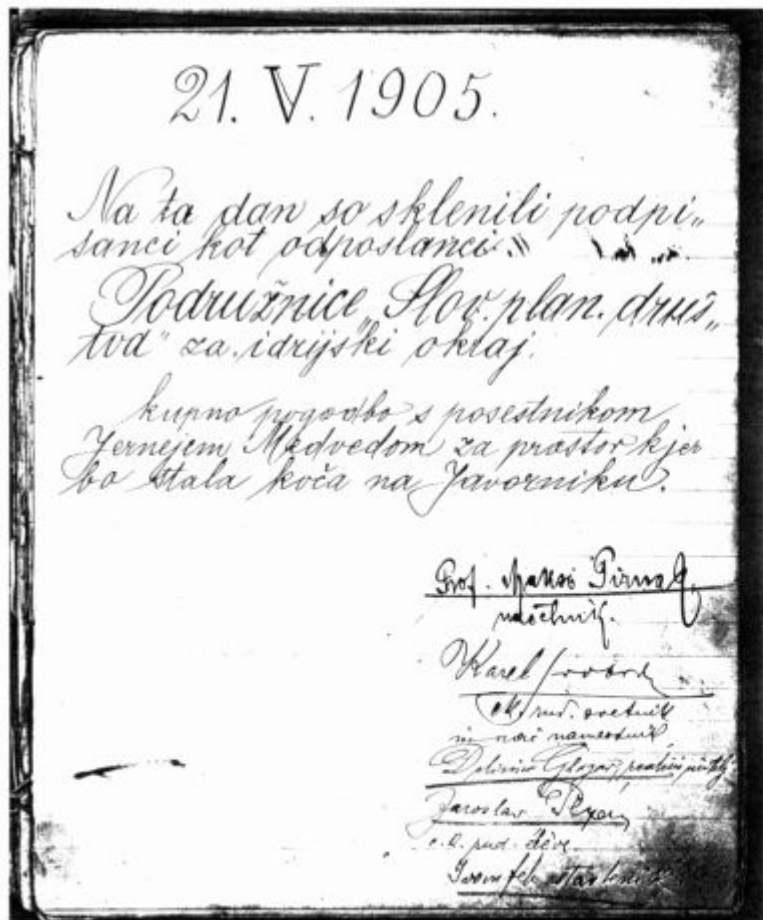 21. V. 1905.
Na ta dan so sklenili podpi„
sanci kot odposlanci
Podružnice „Slov. plan. druš„
tva" za idrijski okraj.
kupno pogodbo s posestnikom
Jernejem Medvedom za prostor kjer
bo stala koča na Javorniku.
Prof. Maks Pirnat,
načelnik.
Karel
c. k. rud. svetnik
in nač. namestnik
Glazar,
Jaroslav
c. k. rud.